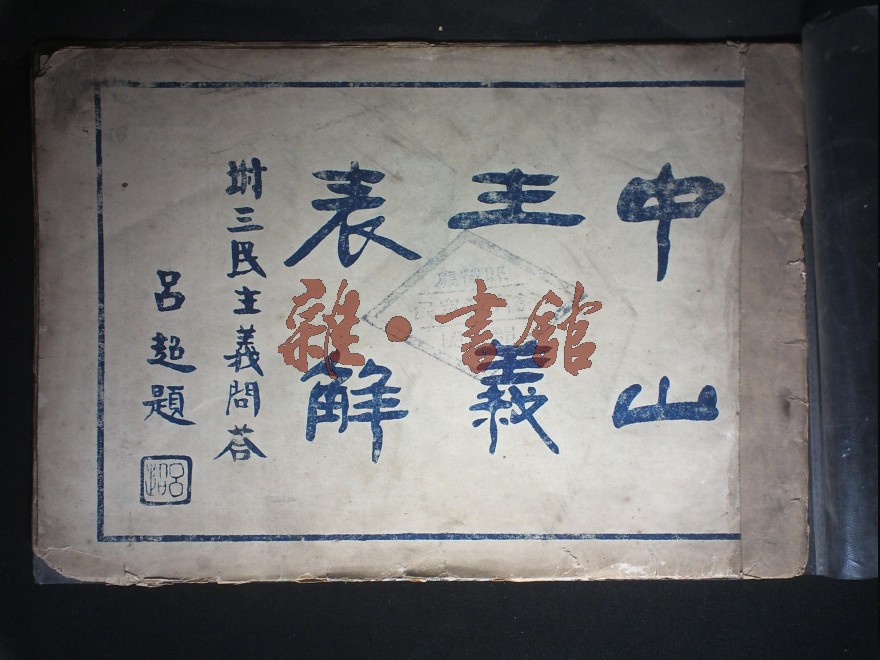 中山
主義
表解
坿三民主義問荅
呂超題
呂超
雜·書館